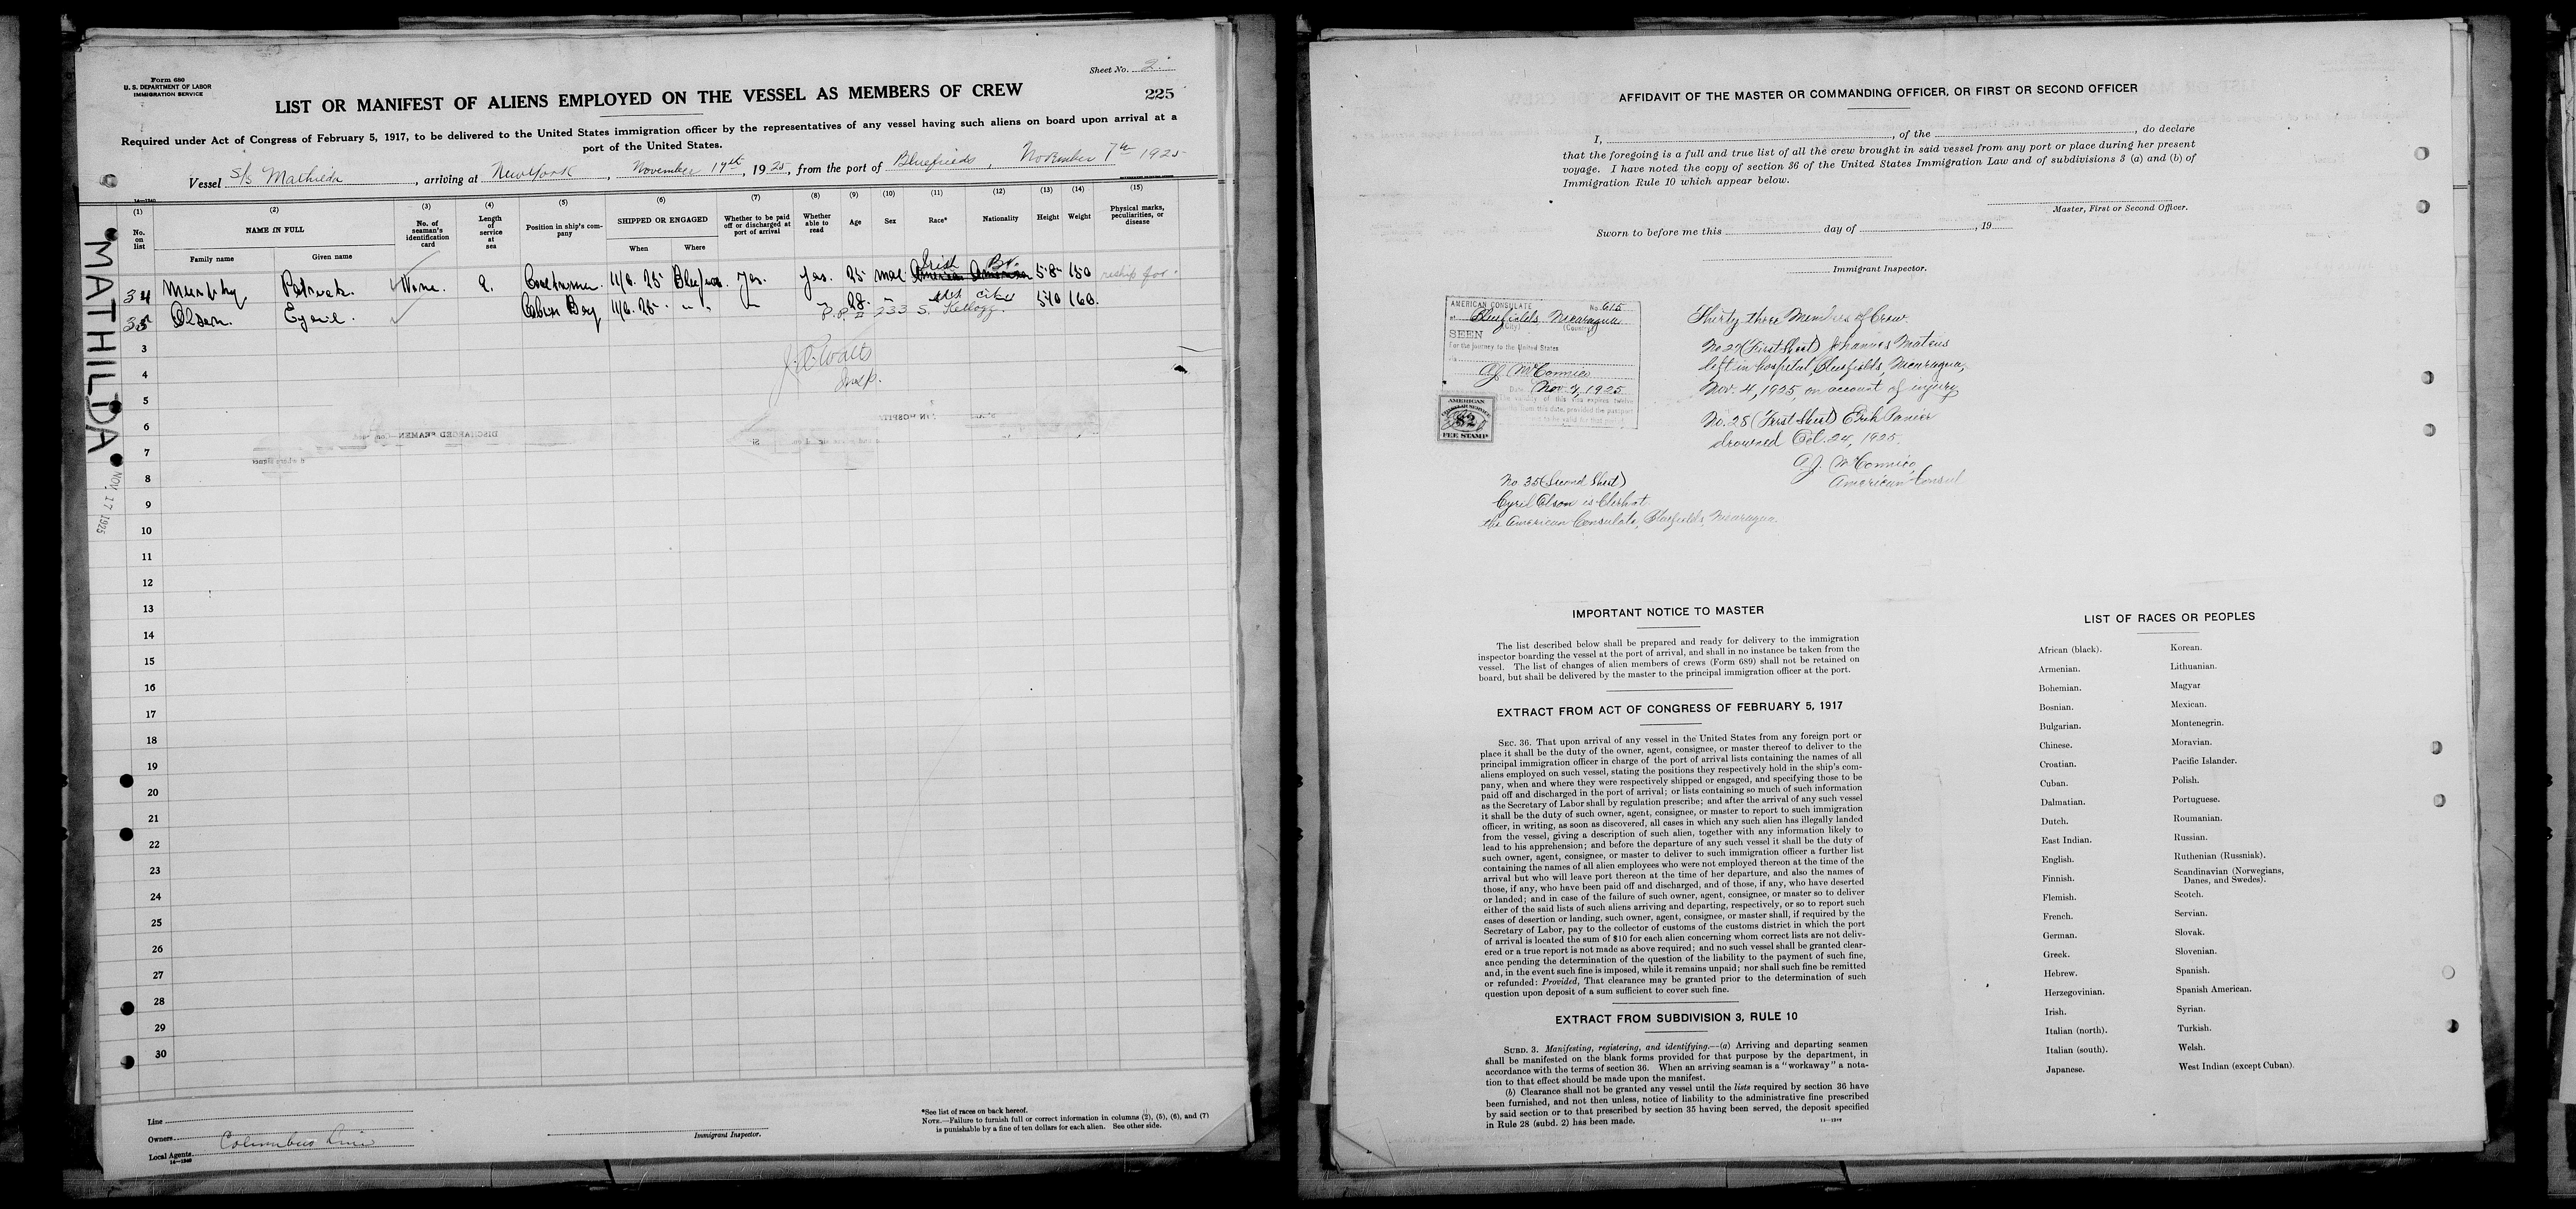 Form 680
U. S. DEPARTMENT OF LABOR
IMMIGRATION SERVICE
Sheet No. 2.
LIST OR MANIFEST OF ALIENS EMPLOYED ON THE VESSEL AS MEMBERS OF CREW
225
Required under Act of Congress of February 5, 1917, to be delivered to the United States immigration officer by the representatives of any vessel having such aliens on board upon arrival at a
port of the United States.
Vessel S/S Mathilda, arriving at New York, November 17th, 1925, from the port of Bluefields, November 7th 1925
14—1240
(1) (2) (3) (4) (5) (6) (7) (8) (9) (10) (11) (12) (13) (14) (15)
No. on list
NAME IN FULL
Family name Given name
No. of seaman's identification card
Length of service at sea
Position in ship's company
SHIPPED OR ENGAGED
When Where
Whether to be paid off or discharged at port of arrival
Whether able to read
Age
Sex
Race*
Nationality
Height
Weight
Physical marks, peculiarities, or disease
Irish Br.
34 Murphy Patrick None 2. 11/6. 25 yes. yes. 25 American American 5-8- 150 reship for
U.S. city
35 Olsen. Cyril. Cabin Boy 11/6. 25 " " 28. 5-10 160.
P.P. 233 S. Kellogg.
3
J. A. Watts
4
Insp.
5
6
DISCHARGED SEAMEN
7
8
9
10
11
12
13
14
15
16
17
18
19
20
21
22
23
24
25
26
27
28
29
30
MATHILDA
NOV 17 1925
Line
Owners Columbus Line
Local Agents
14—1240
Immigrant Inspector.
*See list of races on back hereof.
NOTE.—Failure to furnish full or correct information in columns (2), (5), (6), and (7)
is punishable by a fine of ten dollars for each alien. See other side.
AFFIDAVIT OF THE MASTER OR COMMANDING OFFICER, OR FIRST OR SECOND OFFICER
I, , of the , do declare
that the foregoing is a full and true list of all the crew brought in said vessel from any port or place during her present
voyage. I have noted the copy of section 36 of the United States Immigration Law and of subdivisions 3 (a) and (b) of
Immigration Rule 10 which appear below.
Master, First or Second Officer.
Sworn to before me this day of , 19
Immigrant Inspector.
AMERICAN CONSULATE No. 615
at Bluefields Nicaragua
(City) (Country)
SEEN
For the journey to the United States
A. J. McConnico
Date Nov. 7, 1925
The validity of this visa expires twelve
from this date, provided the passport
to be valid for that period
AMERICAN
CONSULAR SERVICE
$2
FEE STAMP
Thirty three Members of Crew.
No 27 (First Sheet) Johannes Mateus
left in hospital, Bluefields, Nicaragua,
Nov. 4, 1925, on account of injury
No. 28 (First Sheet) Erich Panier
drowned Oct. 24, 1925.
A. J. McConnico
American Consul
No. 35 (Second Sheet)
Cyril Olson is Clerk at
the American Consulate, Bluefields, Nicaragua.
IMPORTANT NOTICE TO MASTER
The list described below shall be prepared and ready for delivery to the immigration
inspector boarding the vessel at the port of arrival, and shall in no instance be taken from the
vessel. The list of changes of alien members of crews (Form 689) shall not be retained on
board, but shall be delivered by the master to the principal immigration officer at the port.
EXTRACT FROM ACT OF CONGRESS OF FEBRUARY 5, 1917
SEC. 36. That upon arrival of any vessel in the United States from any foreign port or
place it shall be the duty of the owner, agent, consignee, or master thereof to deliver to the
principal immigration officer in charge of the port of arrival lists containing the names of all
aliens employed on such vessel, stating the positions they respectively hold in the ship's com-
pany, when and where they were respectively shipped or engaged, and specifying those to be
paid off and discharged in the port of arrival; or lists containing so much of such information
as the Secretary of Labor shall by regulation prescribe; and after the arrival of any such vessel
it shall be the duty of such owner, agent, consignee, or master to report to such immigration
officer, in writing, as soon as discovered, all cases in which any such alien has illegally landed
from the vessel, giving a description of such alien, together with any information likely to
lead to his apprehension; and before the departure of any such vessel it shall be the duty of
such owner, agent, consignee, or master to deliver to such immigration officer a further list
containing the names of all alien employees who were not employed thereon at the time of the
arrival but who will leave port thereon at the time of her departure, and also the names of
those, if any, who have been paid off and discharged, and of those, if any, who have deserted
or landed; and in case of the failure of such owner, agent, consignee, or master so to deliver
either of the said lists of such aliens arriving and departing, respectively, or so to report such
cases of desertion or landing, such owner, agent, consignee, or master shall, if required by the
Secretary of Labor, pay to the collector of customs of the customs district in which the port
of arrival is located the sum of $10 for each alien concerning whom correct lists are not deliv-
ered or a true report is not made as above required; and no such vessel shall be granted clear-
ance pending the determination of the question of the liability to the payment of such fine,
and, in the event such fine is imposed, while it remains unpaid; nor shall such fine be remitted
or refunded: Provided, That clearance may be granted prior to the determination of such
question upon deposit of a sum sufficient to cover such fine.
EXTRACT FROM SUBDIVISION 3, RULE 10
SUBD. 3. Manifesting, registering, and identifying.—(a) Arriving and departing seamen
shall be manifested on the blank forms provided for that purpose by the department, in
accordance with the terms of section 36. When an arriving seaman is a "workaway" a nota-
tion to that effect should be made upon the manifest.
(b) Clearance shall not be granted any vessel until the lists required by section 36 have
been furnished, and not then unless, notice of liability to the administrative fine prescribed
by said section or to that prescribed by section 35 having been served, the deposit specified
in Rule 28 (subd. 2) has been made.
LIST OF RACES OR PEOPLES
African (black). Korean.
Armenian. Lithuanian.
Bohemian. Magyar
Bosnian. Mexican.
Bulgarian. Montenegrin.
Chinese. Moravian.
Croatian. Pacific Islander.
Cuban. Polish.
Dalmatian. Portuguese.
Dutch. Roumanian.
East Indian. Russian.
English. Ruthenian (Russniak).
Finnish. Scandinavian (Norwegians,
Danes, and Swedes).
Flemish. Scotch.
French. Servian.
German. Slovak.
Greek. Slovenian.
Hebrew. Spanish.
Herzegovinian. Spanish American.
Irish. Syrian.
Italian (north). Turkish.
Italian (south). Welsh.
Japanese. West Indian (except Cuban).